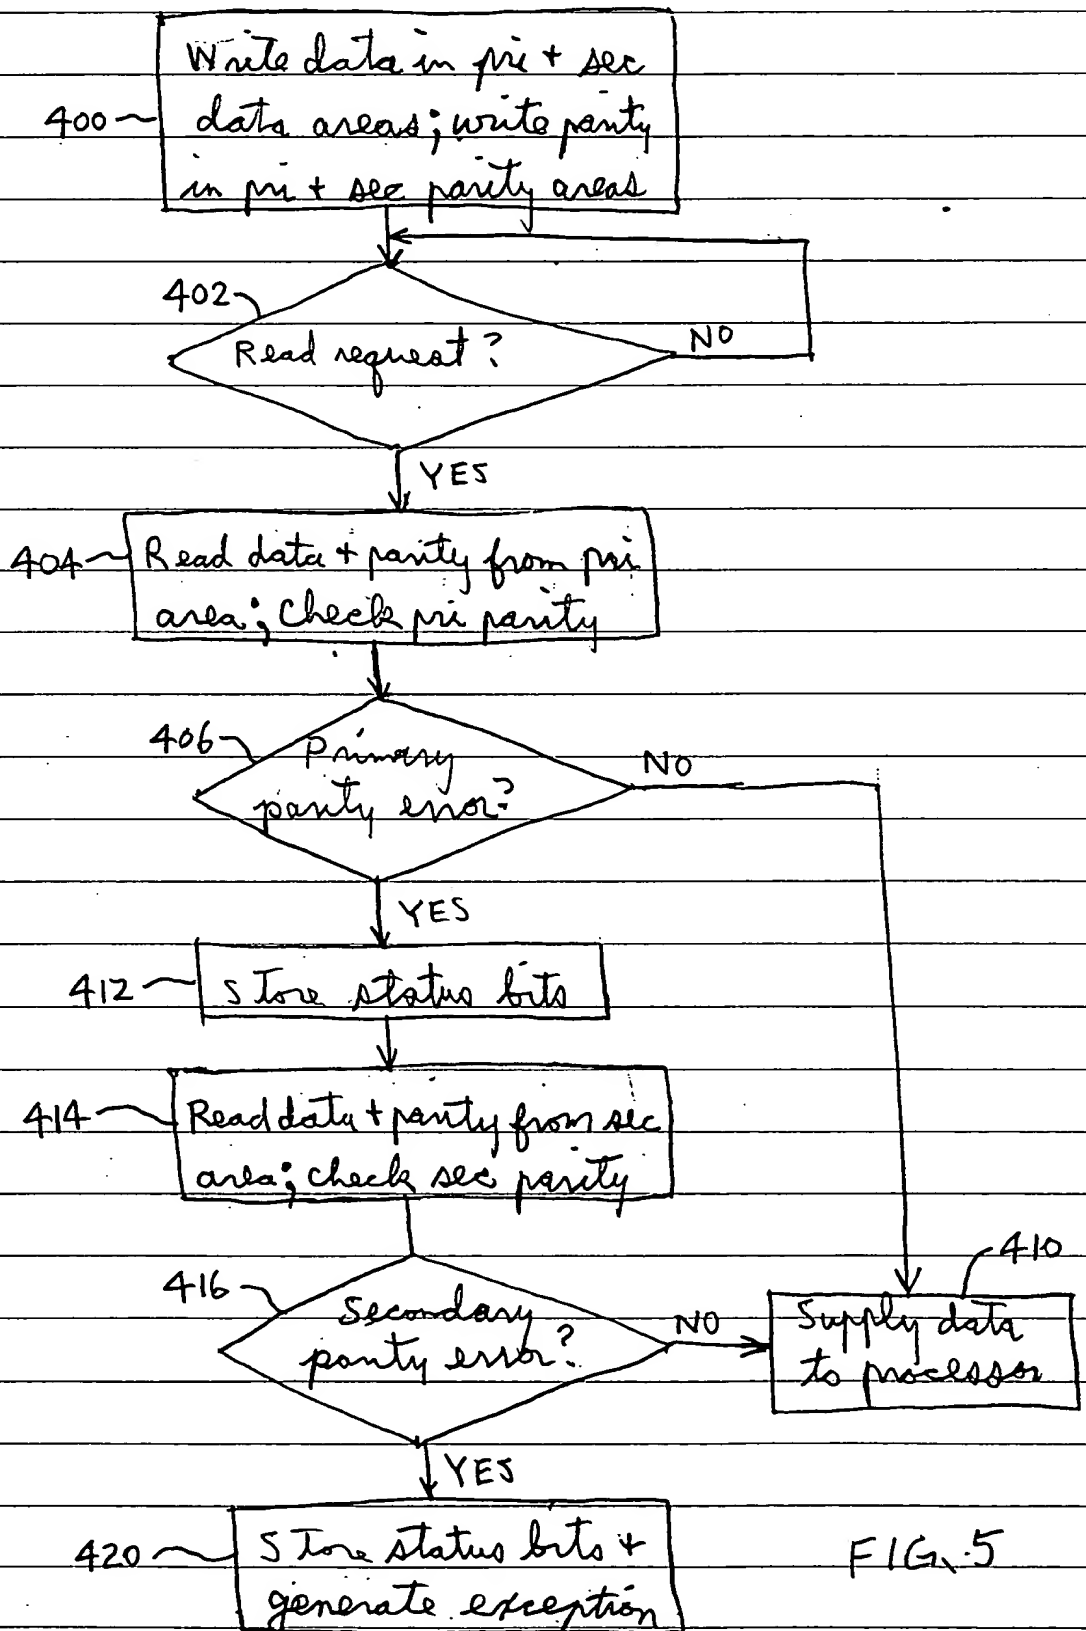 Write data in pri + sec
400
data areas; write parity
in pri + sec parity areas
402
Read request?
NO
YES
404
Read data + parity from pri
area; check pri parity
406
Primary
parity error?
NO
YES
412
Store status bits
414
Read data + parity from sec
area; check sec parity
416
Secondary
parity error?
NO
410
Supply data
to processor
YES
420
Store status bits +
generate exception
FIG. 5